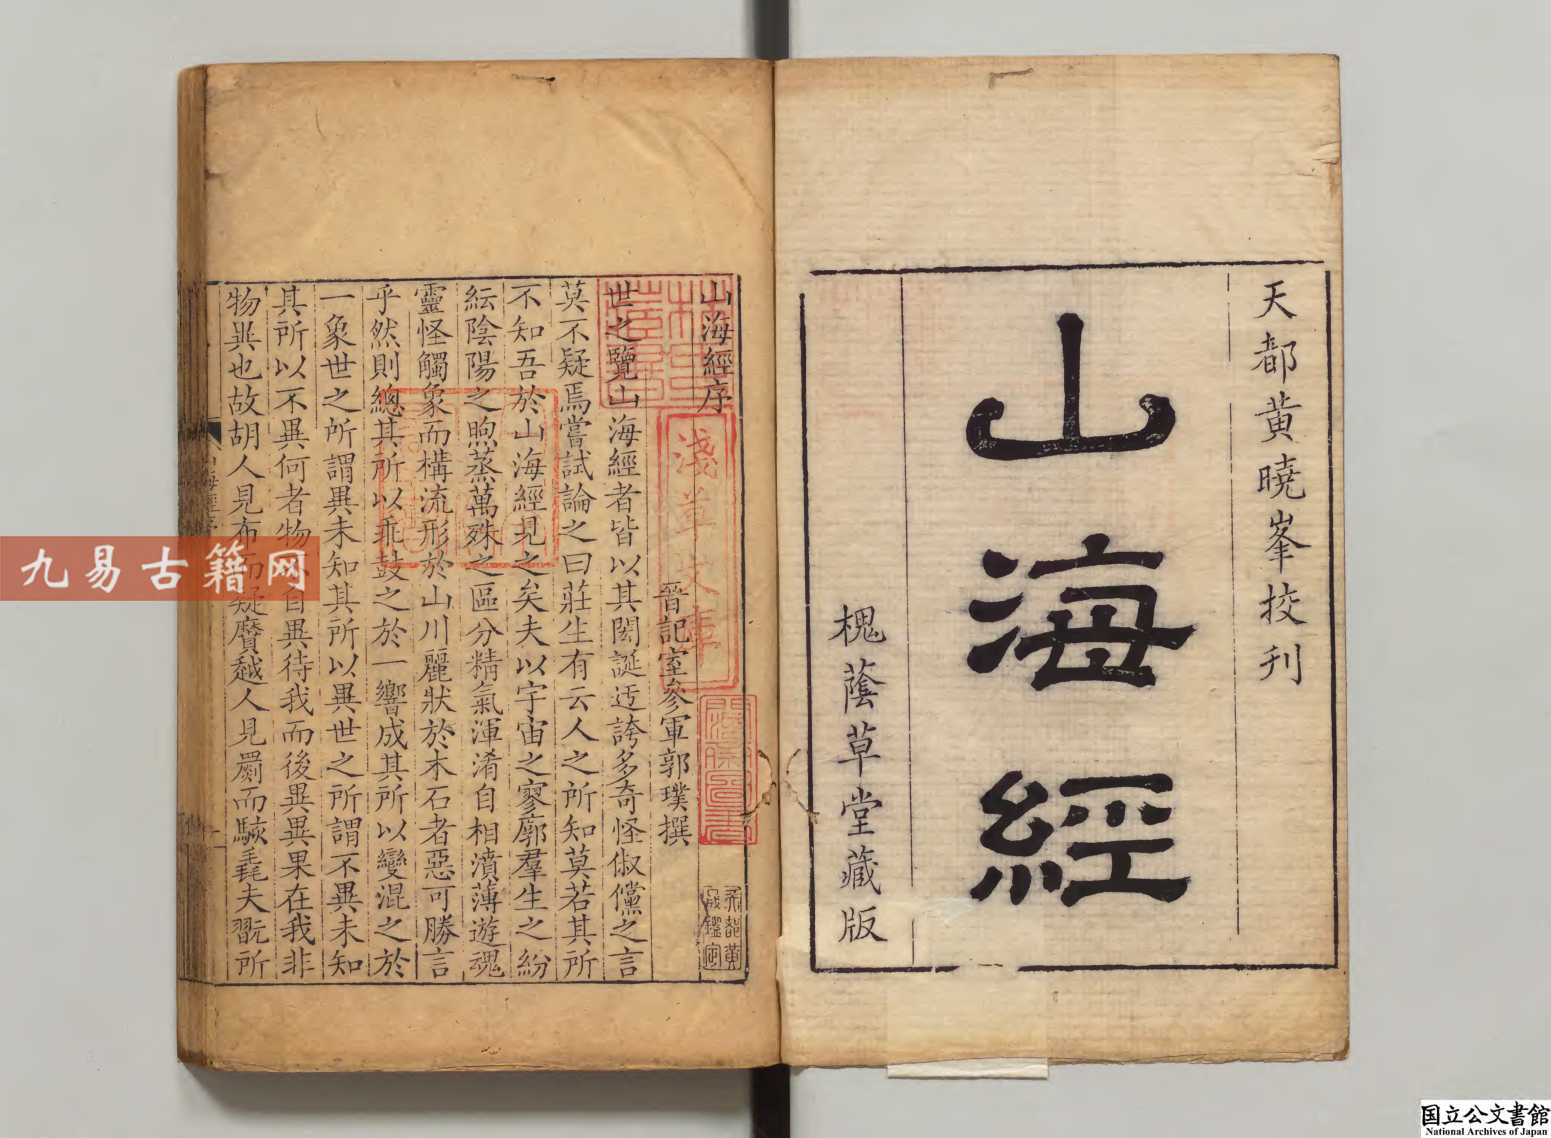 天都黄曉峯校刊
山海經
槐蔭草堂藏版
山海經序
淺草文庫
晉記室參軍郭璞撰
世之覽山海經者皆以其閎誕迂誇多奇怪俶儻之言
莫不疑焉嘗試論之曰莊生有云人之所知莫若其所
不知吾於山海經見之矣夫以宇宙之寥廓羣生之紛
紜陰陽之煦蒸萬殊之區分精氣渾淆自相濆薄遊魂
靈怪觸象而構流形於山川麗狀於木石者惡可勝言
乎然則總其所以乖鼓之於一響成其所以變混之於
一象世之所謂異未知其所以異世之所謂不異未知
其所以不異何者物自異待我而後異異果在我非
物異也故胡人見布而疑黂越人見罽而駭毳夫翫所
九易古籍网
国立公文書館
National Archives of Japan